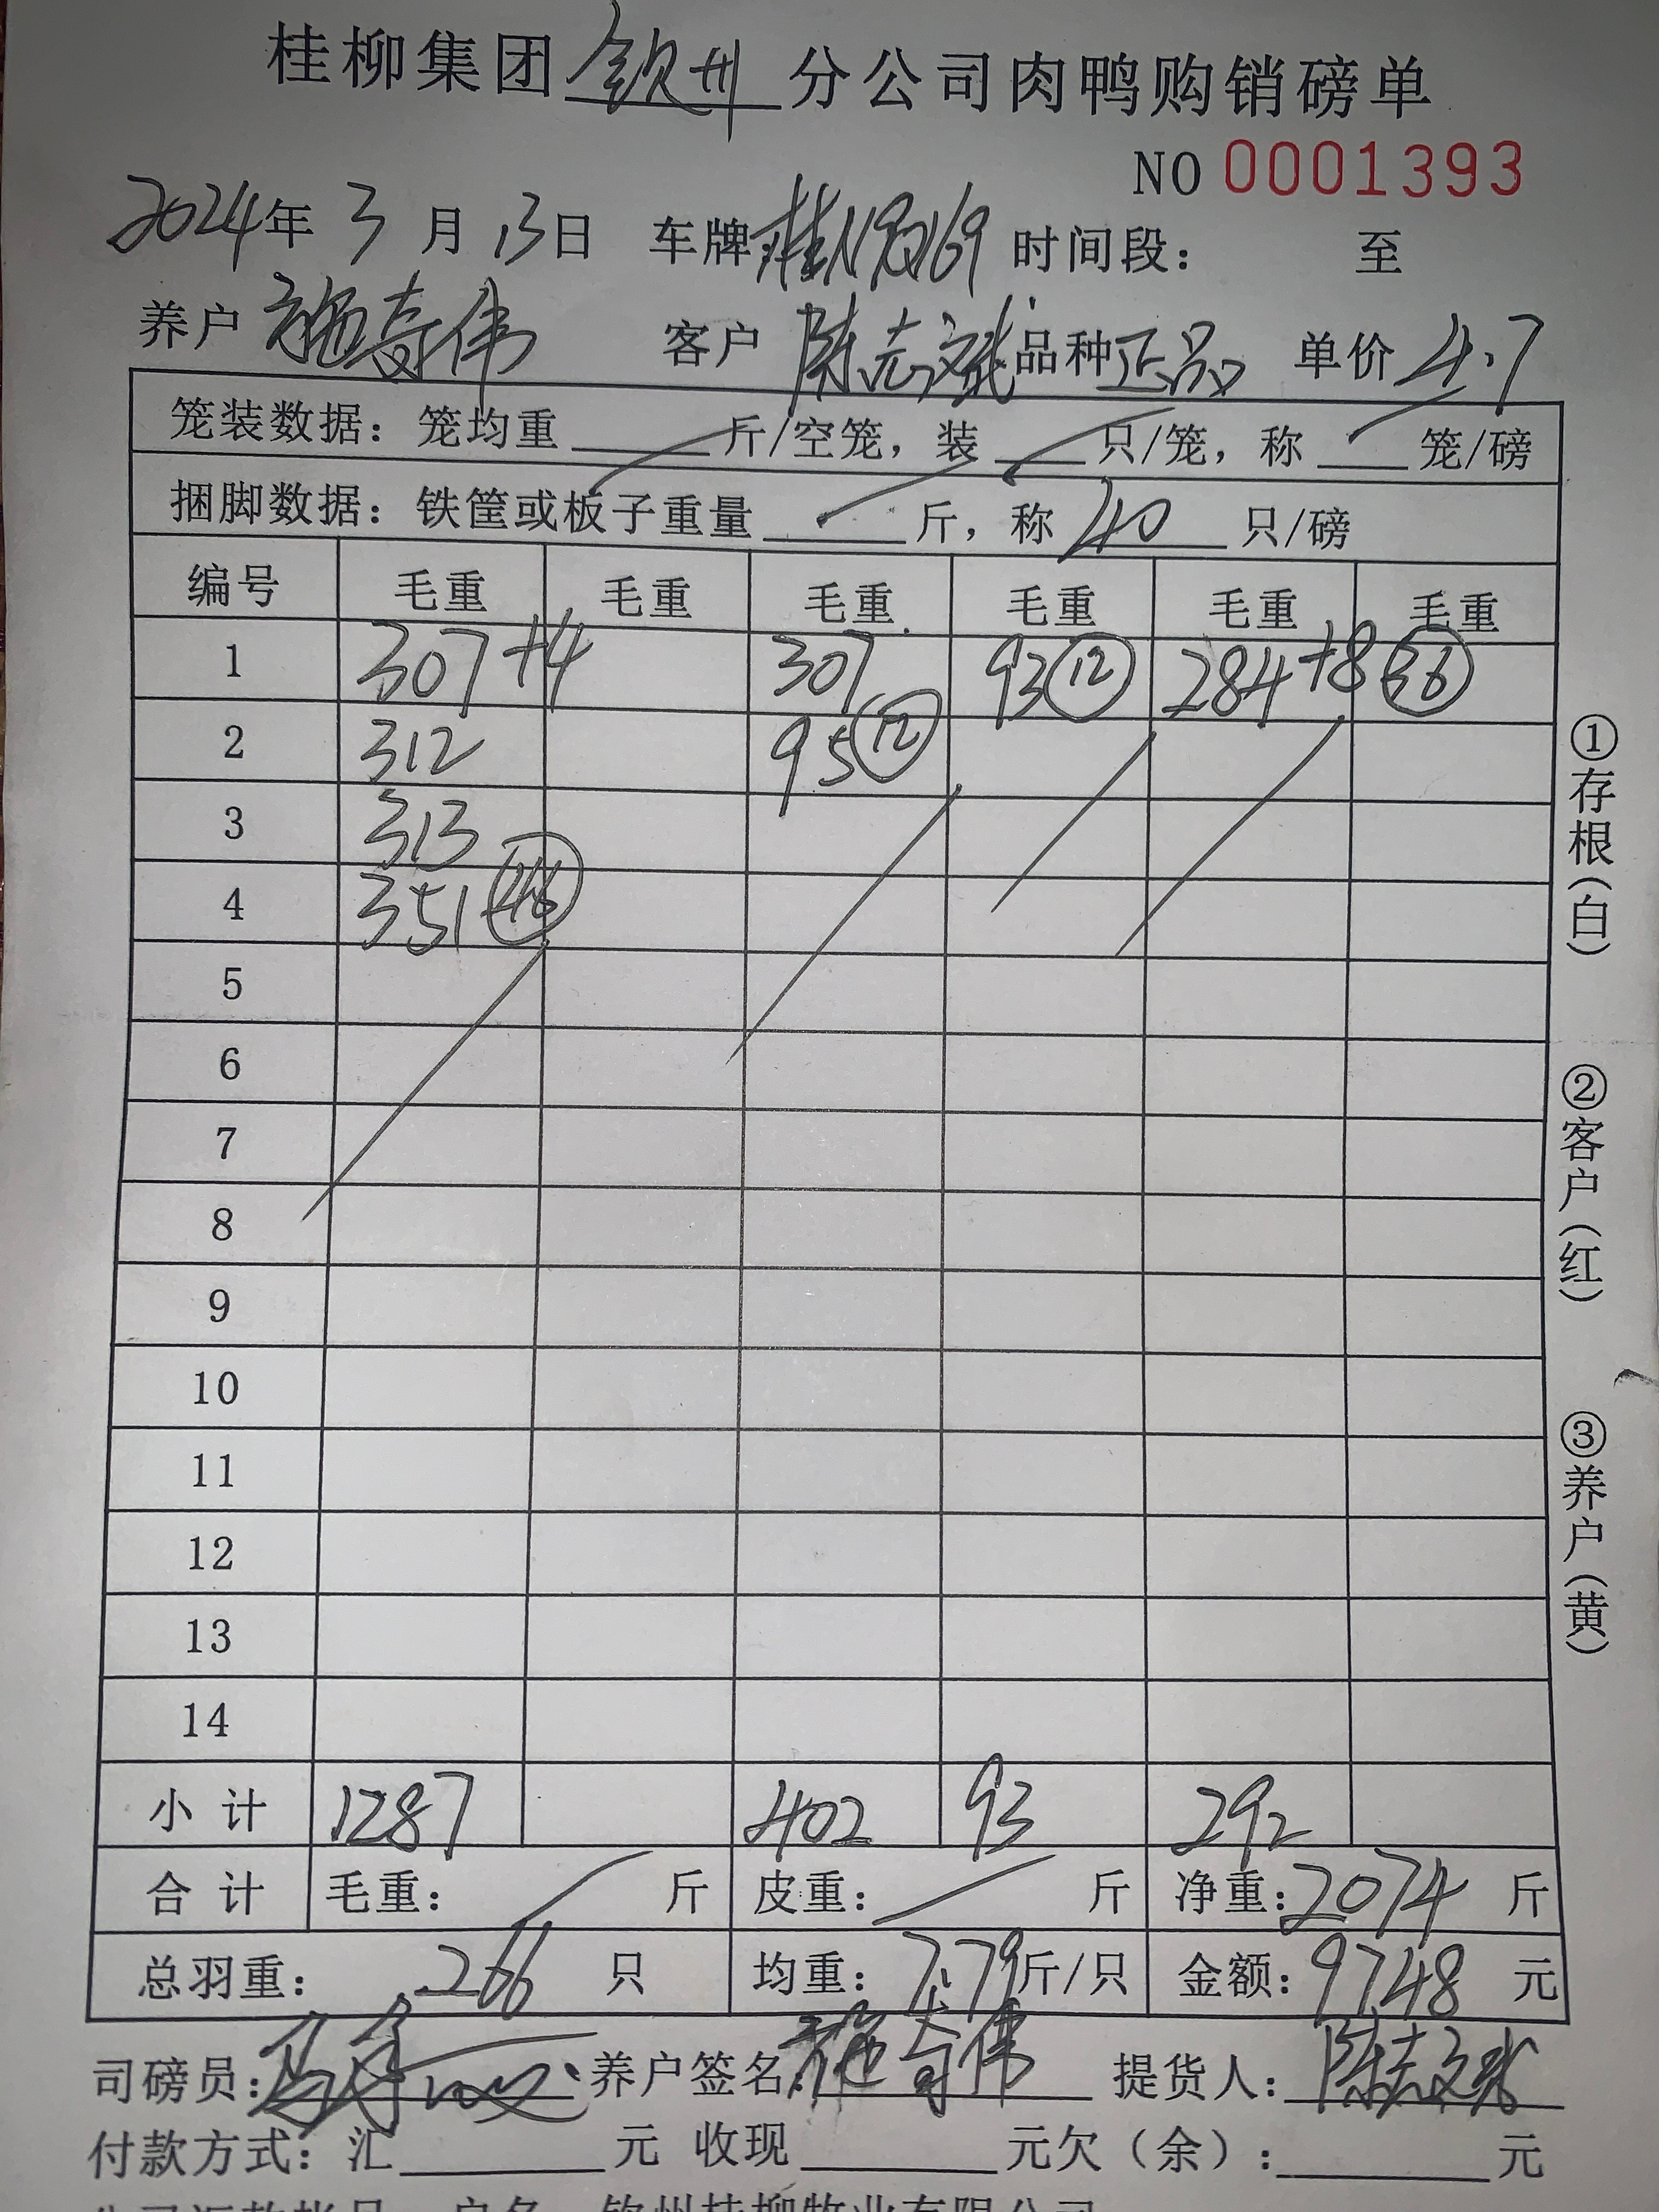 桂柳集团 钦州 分公司肉鸭购销磅单
NO 0001393
2024年 3 月 13日 车牌 时间段: 至
养户 施奇伟 客户 陈志斌 品种 正品 单价 4.7
笼装数据: 笼均重 斤/空笼, 装 只/笼, 称 笼/磅
捆脚数据: 铁筐或板子重量 斤, 称 40 只/磅
编号 毛重 毛重 毛重 毛重 毛重 毛重
1 307+4 307 93 ⑫ 284+8 36
2 312 95 ⑫
3 313
4 351 46
5
6
7
8
9
10
11
12
13
14
小计 1287 402 93 292
合计 毛重: 斤 皮重: 斤 净重: 2074 斤
总羽重: 266 只 均重: 7.79 斤/只 金额: 9748 元
司磅员: 养户签名: 施奇伟 提货人: 陈志斌
付款方式: 汇 元 收现 元欠(余): 元
①存根(白)
②客户(红)
③养户(黄)